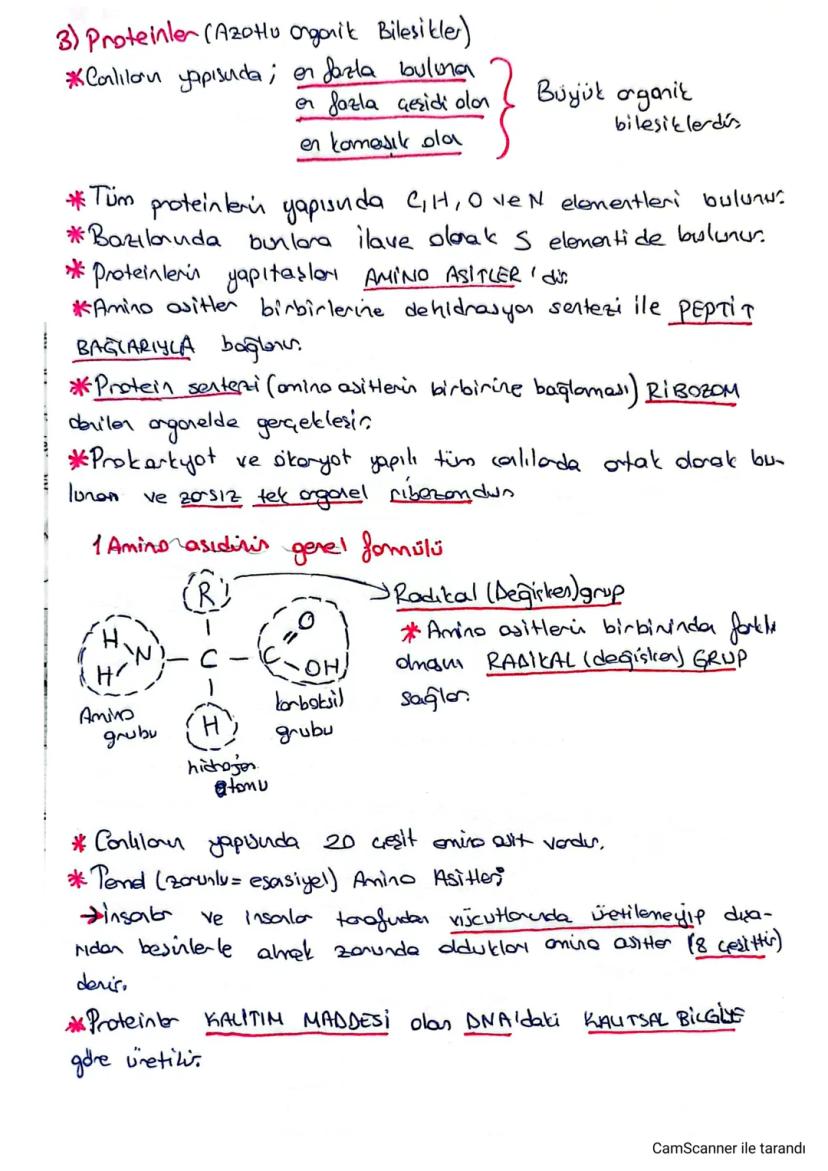 3) Proteinler (Azotlu Organik Bileşikler)
*Canlıların yapısında; en fazla bulunan
en fazla çeşidi olan
en komaşık olan
Büyük organik
bileşiklerdir
*Tüm proteinlerin yapısında C, H, O ve N elementleri bulunur.
*Bazılarında bunlara ilave olarak S elementi de bulunur.
*Proteinlerin yapıtaşları AMİNO ASİTLER'dir.
*Amino asitler birbirlerine dehidrasyon sentezi ile PEPTİT
BAĞLARIYLA bağlanır.
*Protein sentezi (amino asitlerin birbirine bağlaması) RİBOZOM
denilen organelde gerçekleşir.
*Prokaryot ve ökaryot yapılı tüm canlılarda ortak olarak bu-
lunan ve zarsız tek organel ribozomdur
1 Amino asidinin genel formülü
R
Radikal (Değişken) grup
*Amino asitlerin birbirinden farklı
olmasını RADİKAL (değişken) GRUP
sağlar.
H
H
N
C
C
O
OH
Amino
grubu
H
karboksil
grubu
hidrojen
atomu
*Canlıların yapısında 20 çeşit amino asit vardır.
*Temel (zorunlu = esasiyel) Amino Asitler;
→İnsanlar ve insanlar tarafından vücutlarında üretilemeyip dışa-
rıdan besinlerle almak zorunda oldukları amino asitler (8 çeşittir)
denir.
*Proteinler KALITIM MADDESİ olan DNA'daki KALITSAL BİLGİYE
göre üretilir.
CamScanner ile tarandı